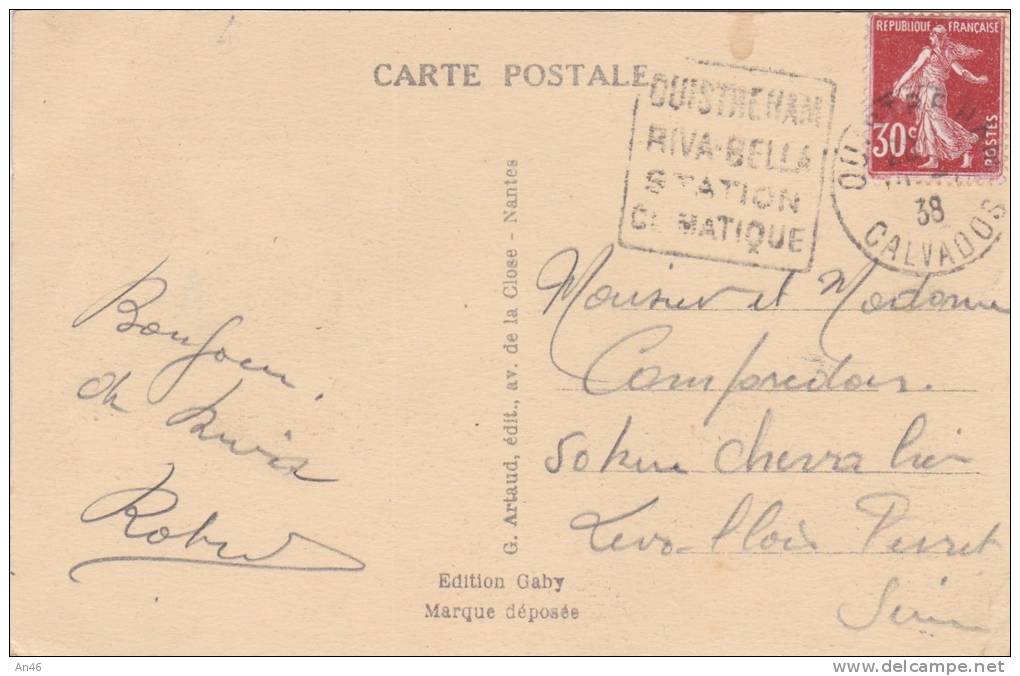 CARTE POSTALE
OUISTREHAM
RIVA-BELLA
STATION
CLIMATIQUE
REPUBLIQUE FRANÇAISE
30c
POSTES
38
CALVADOS
G. Artaud, édit., av. de la Close - Nantes
Bonjour
de
Robert
Monsieur et Madame
Compredon.
50 rue Chevalier
Levallois Perret
Seine
Edition Gaby
Marque déposée
An46
www.delcampe.net